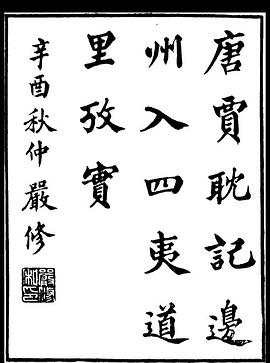 唐賈耽記邊
州入四夷道
里攷實
辛酉秋仲嚴修